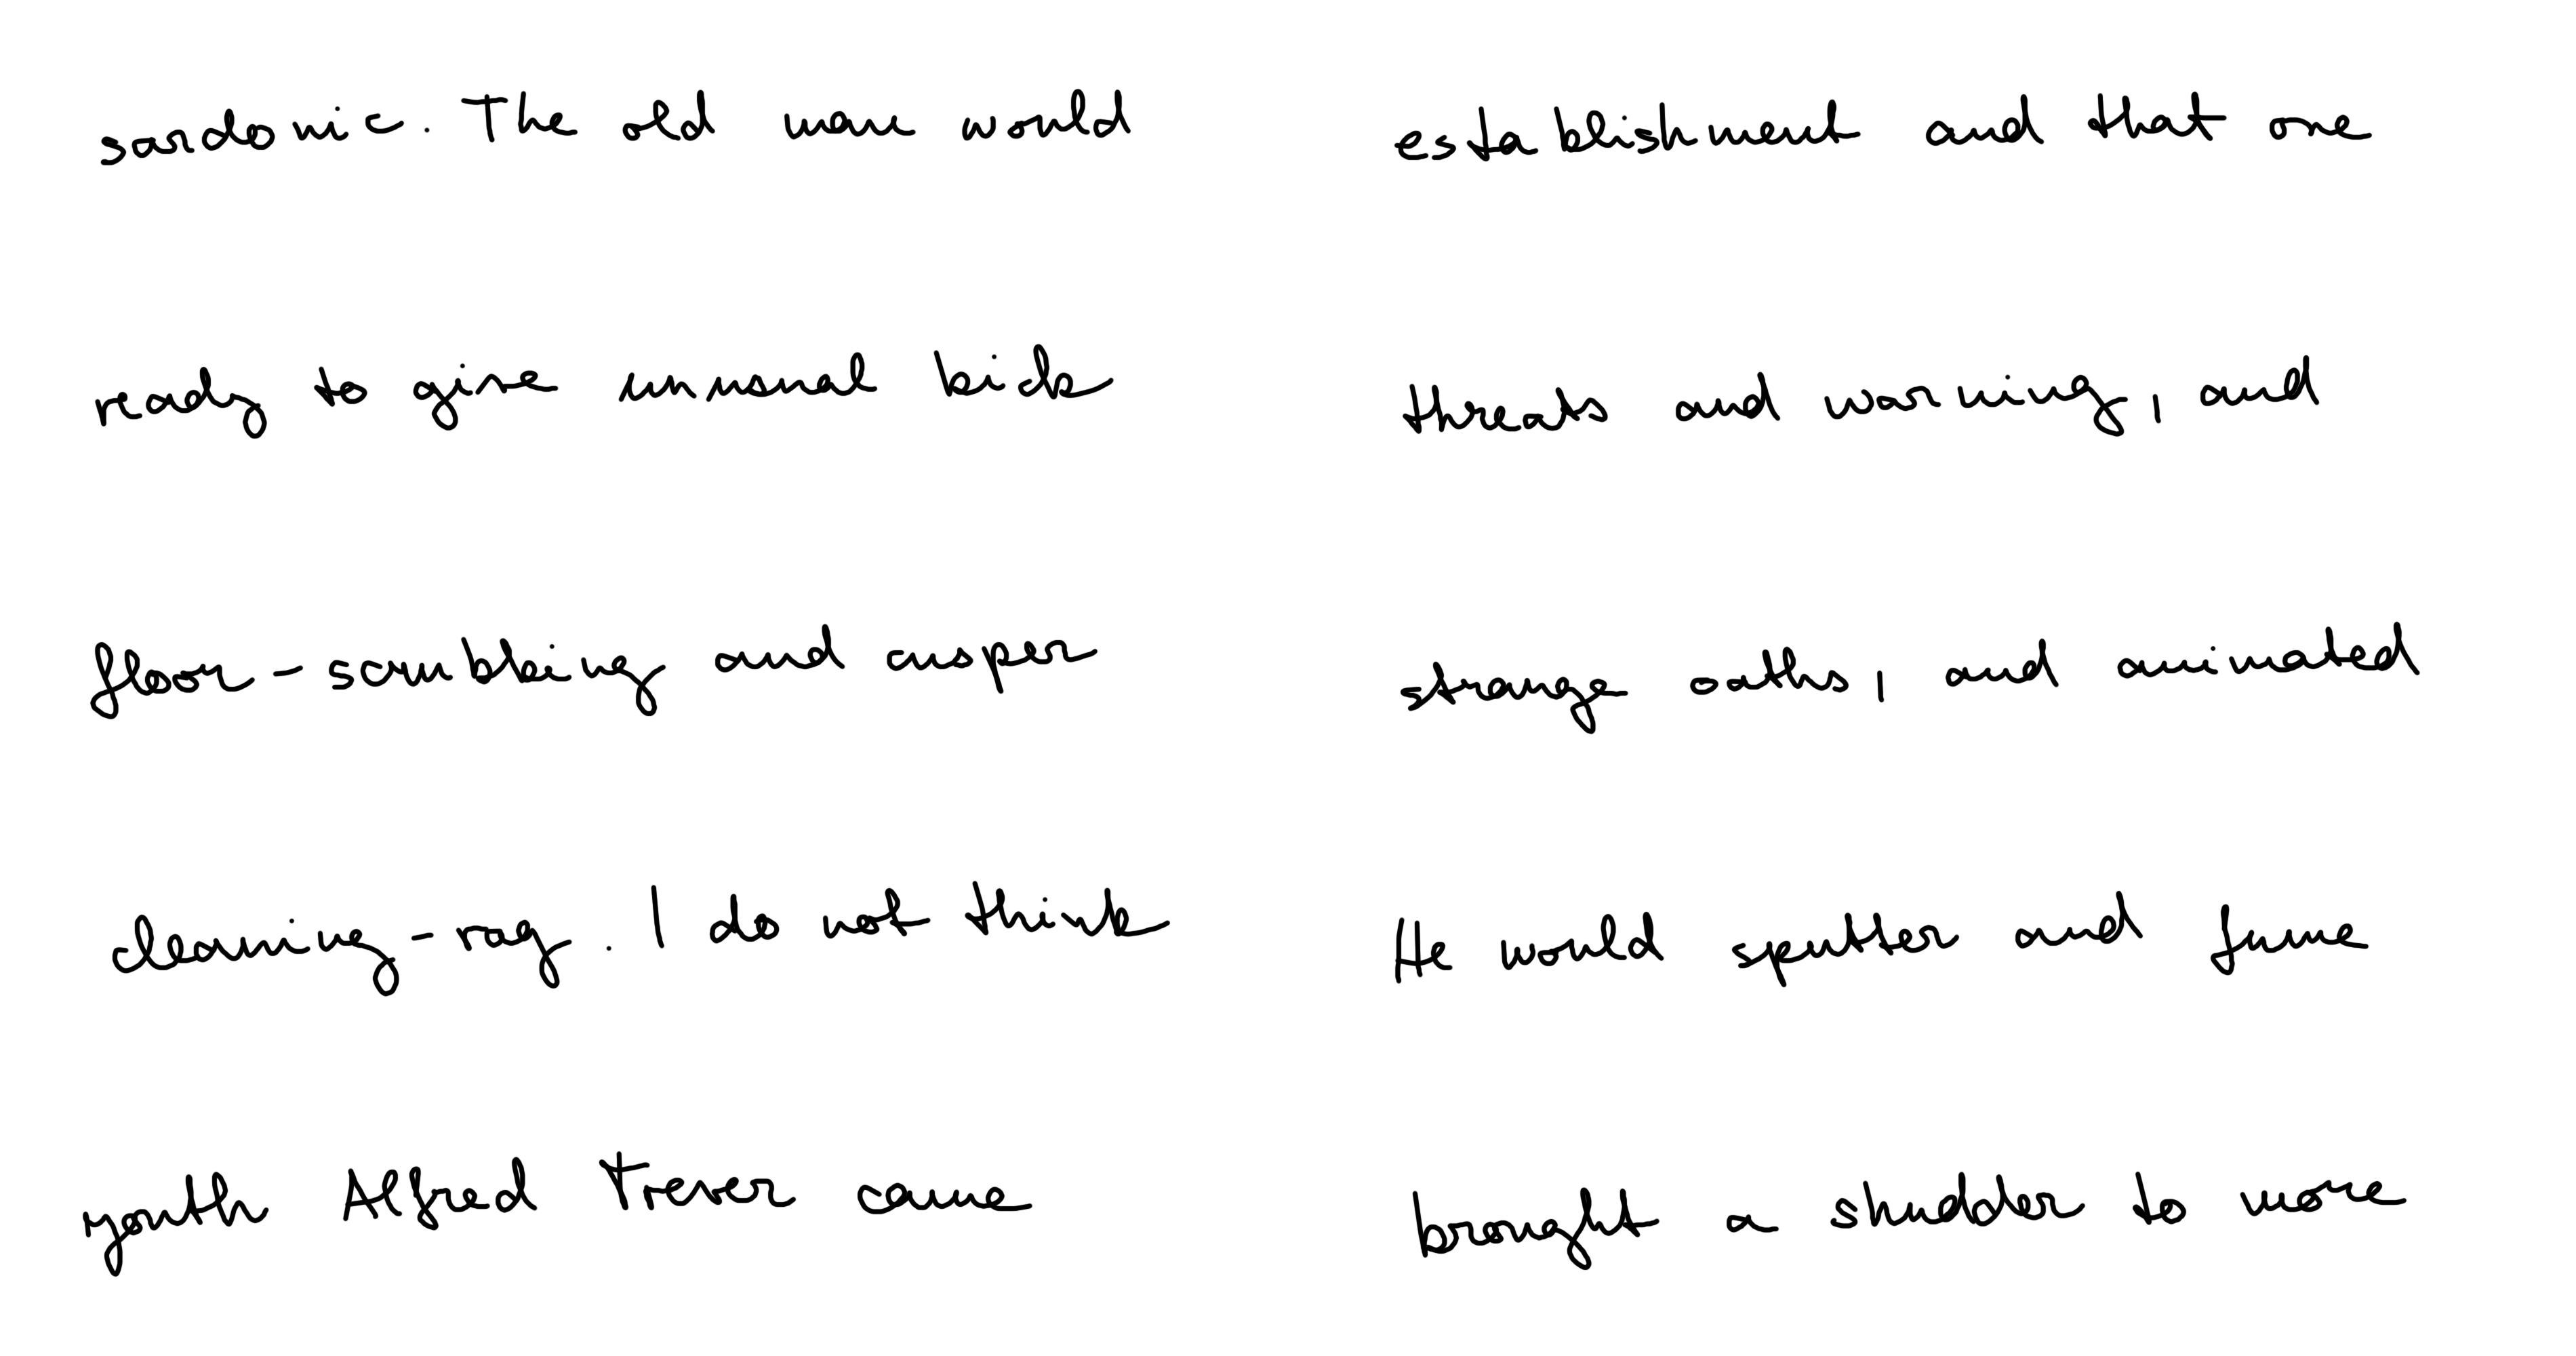 sardonic. The old man would
ready to give unusual kick
floor-scrubbing and cusper
cleaning-rag. I do not think
youth Alfred Trever came
establishment and that one
threats and warning, and
strange oaths, and animated
He would sputter and fume
brought a shudder to more